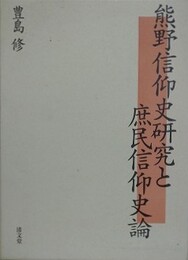 熊野信仰史研究と
庶民信仰史論
豊島 修
清文堂